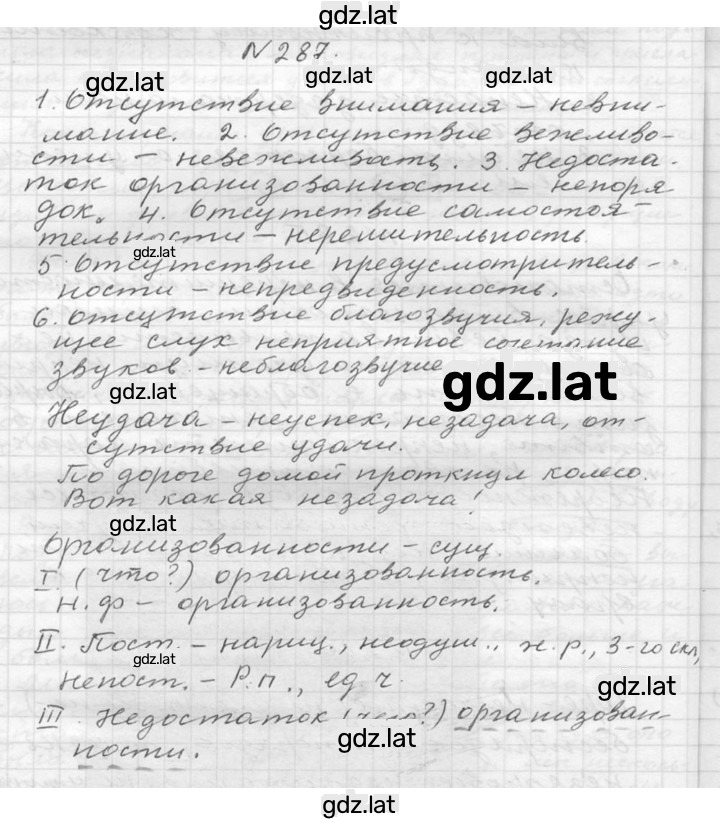 gdz.lat
N 287.
gdz.lat gdz.lat gdz.lat
1. Отсутствие внимания – невни-
мание. 2. Отсутствие вежливо-
сти – невежливость. 3. Недоста-
ток организованности – непоря
док. 4. Отсутствие самостоя-
тельности – нерешительность.
gdz.lat
5. Отсутствие предусмотритель-
ности – непредвиденность.
6. Отсутствие благозвучия, режу-
щее слух неприятное сочетание
звуков – неблагозвучие
gdz.lat gdz.lat
Неудача – неуспех, незадача, от-
сутствие удачи.
По дороге домой проткнул колесо.
Вот какая незадача!
gdz.lat
Организованности – сущ.
I (что?) организованность.
н.ф – организованность.
II. Пост. – нариц., неодуш., ж.р., 3-го скл,
gdz.lat
непост. – Р.п., ед.ч.
gdz.lat
III. Недостаток (чего?) организован-
gdz.lat
ности.
gdz.lat